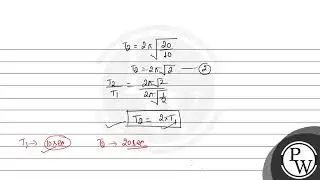 T₂ = 2π √(20/10)
T₂ = 2π √2 — ②
T₂/T₁ = 2π√2 / 2π√(1/2)
T₂ = 2×T₁
T₁ → 10 sec T₂ → 20 sec
PW